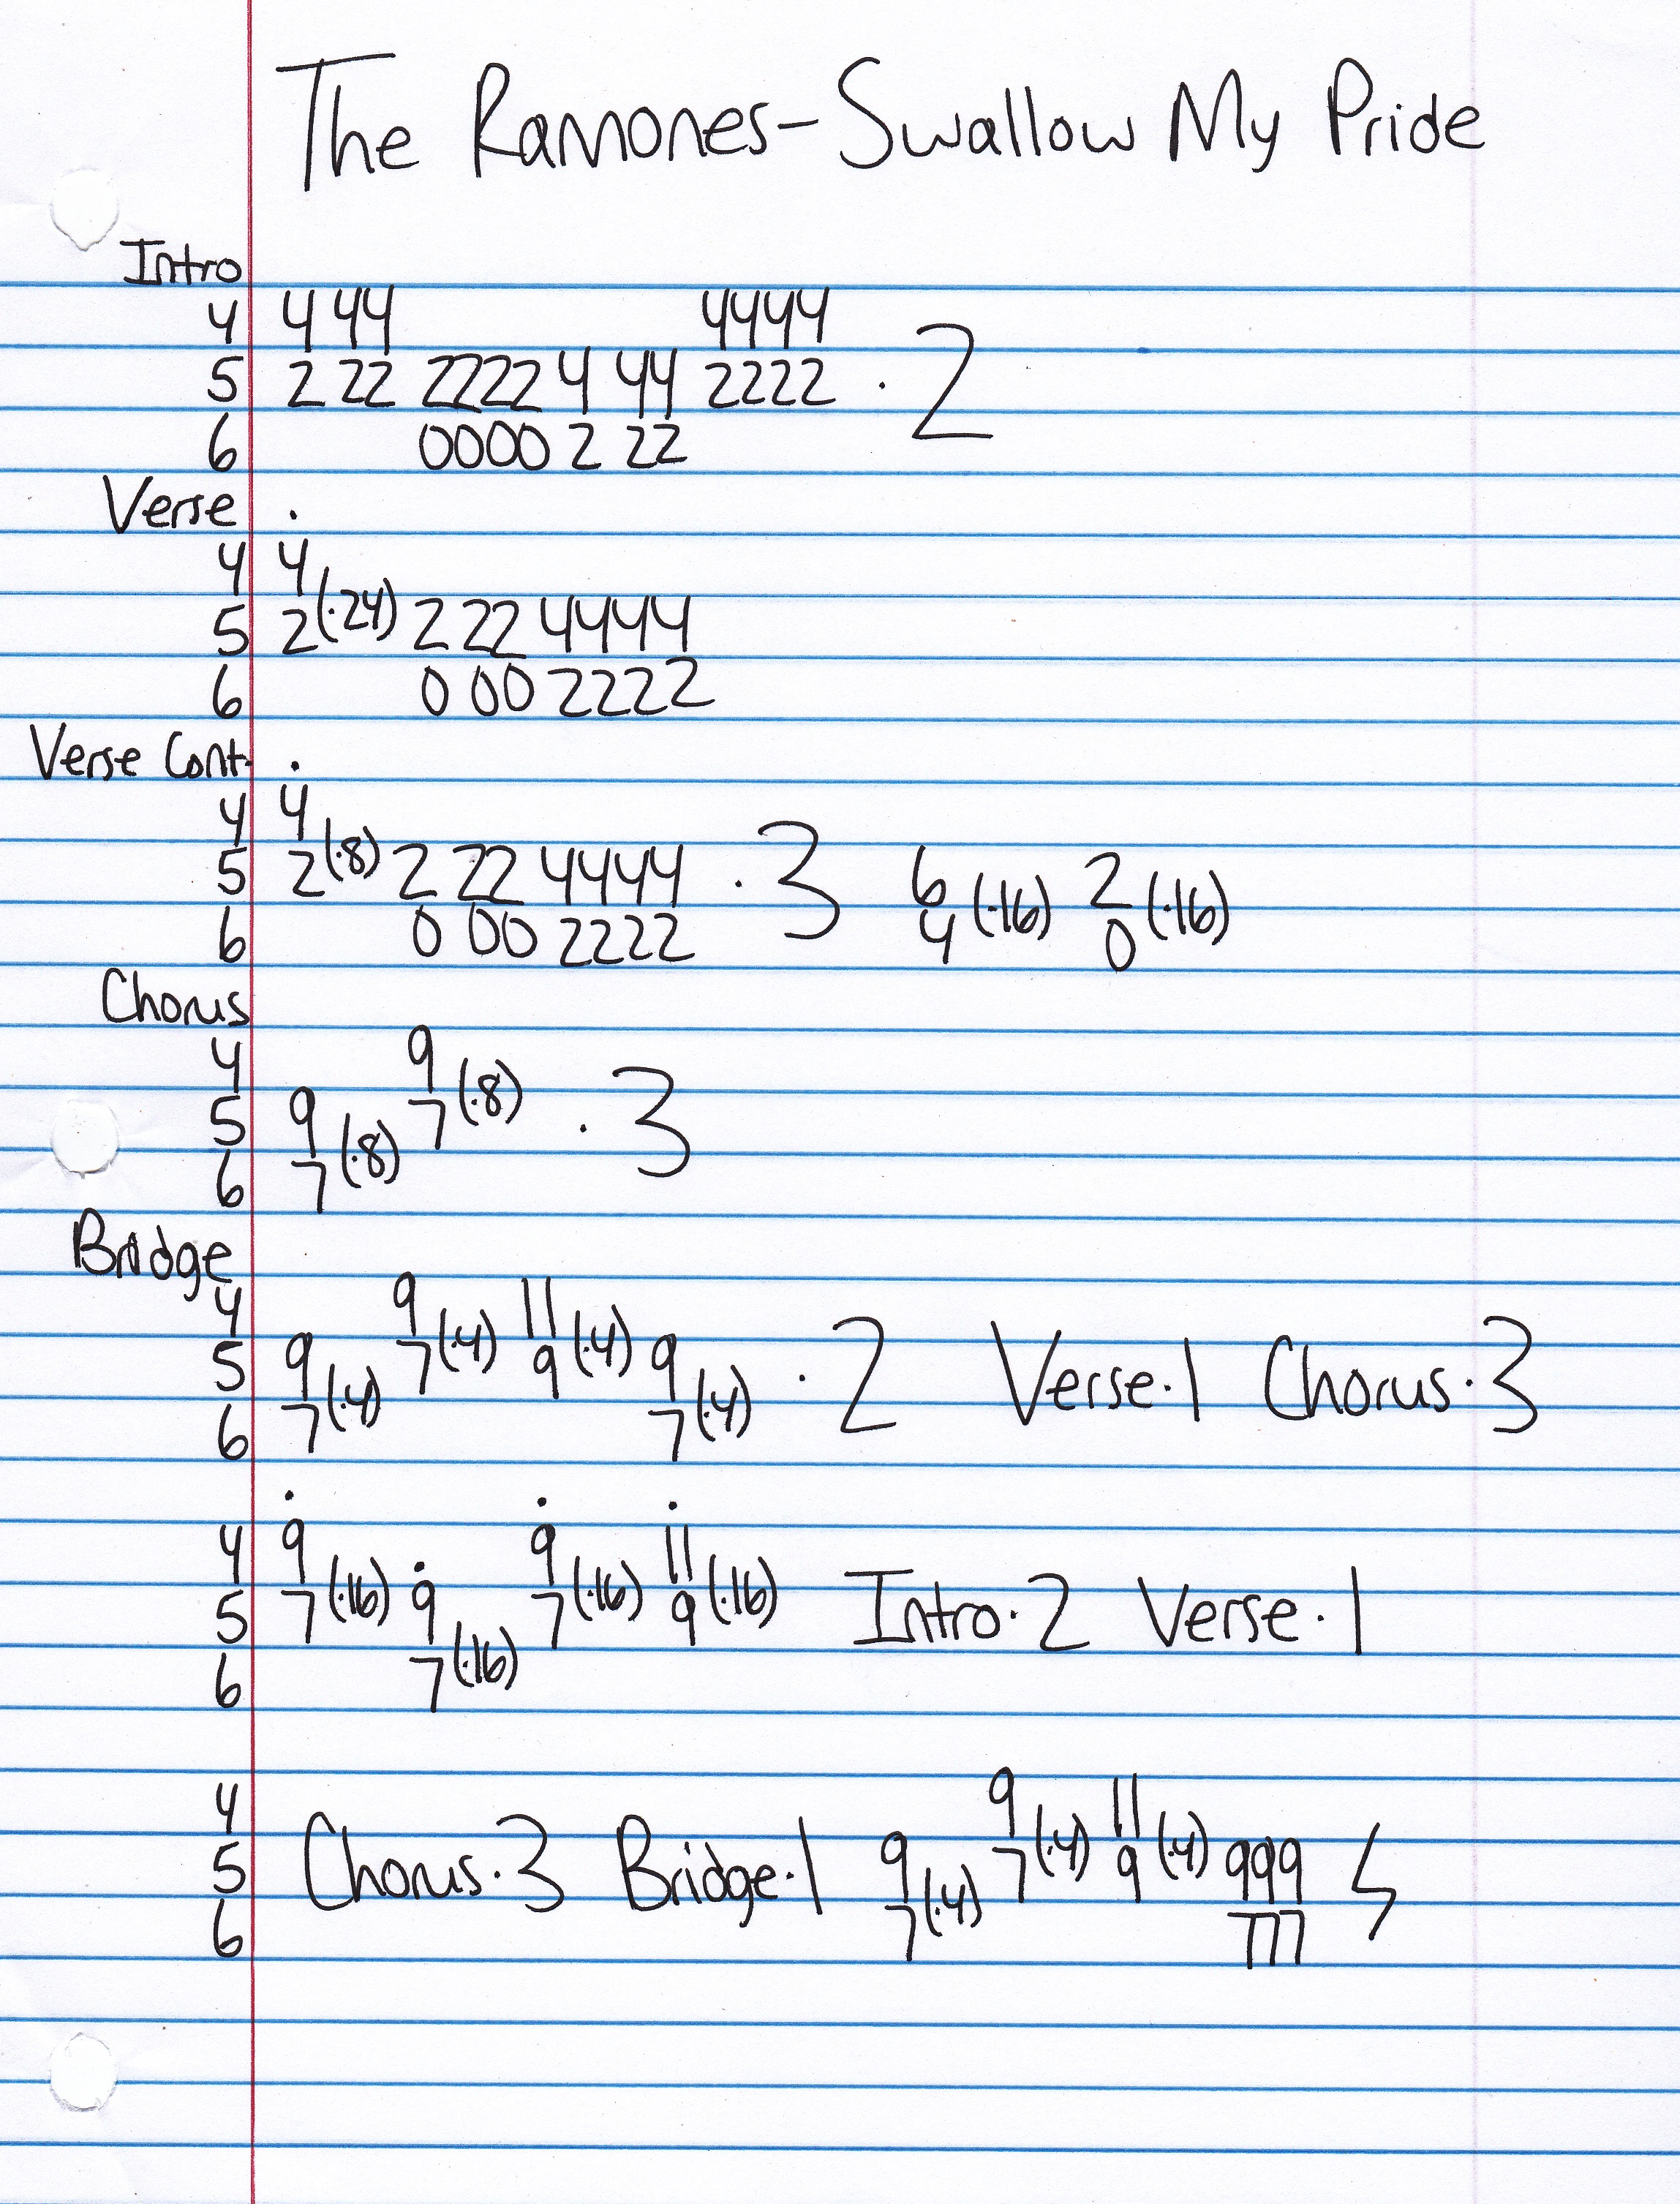 The Ramones-Swallow My Pride
Intro
4 4 44 4444
5 2 22 2222 4 44 2222 · 2
6 0000 2 22
Verse ·
4 4
5 2(·24) 2 22 4444
6 0 00 2222
Verse Cont. ·
4 4
5 2(·8) 2 22 4444 · 3 6 2
6 0 00 2222 4(·16) 0(·16)
Chorus
4 9
5 9 7(·8) · 3
6 7(·8)
Bridge
4 9 11
5 9 7(·4) 9(·4) 9 · 2 Verse·1 Chorus·3
6 7(·4) 7(·4)
· · ·
4 9 · 9 11
5 7(·16) 9 7(·16) 9(·16) Intro·2 Verse·1
6 7(·16)
4 9 11
5 Chorus·3 Bridge·1 9 7(·4) 9(·4) 999
6 7(·4) 777